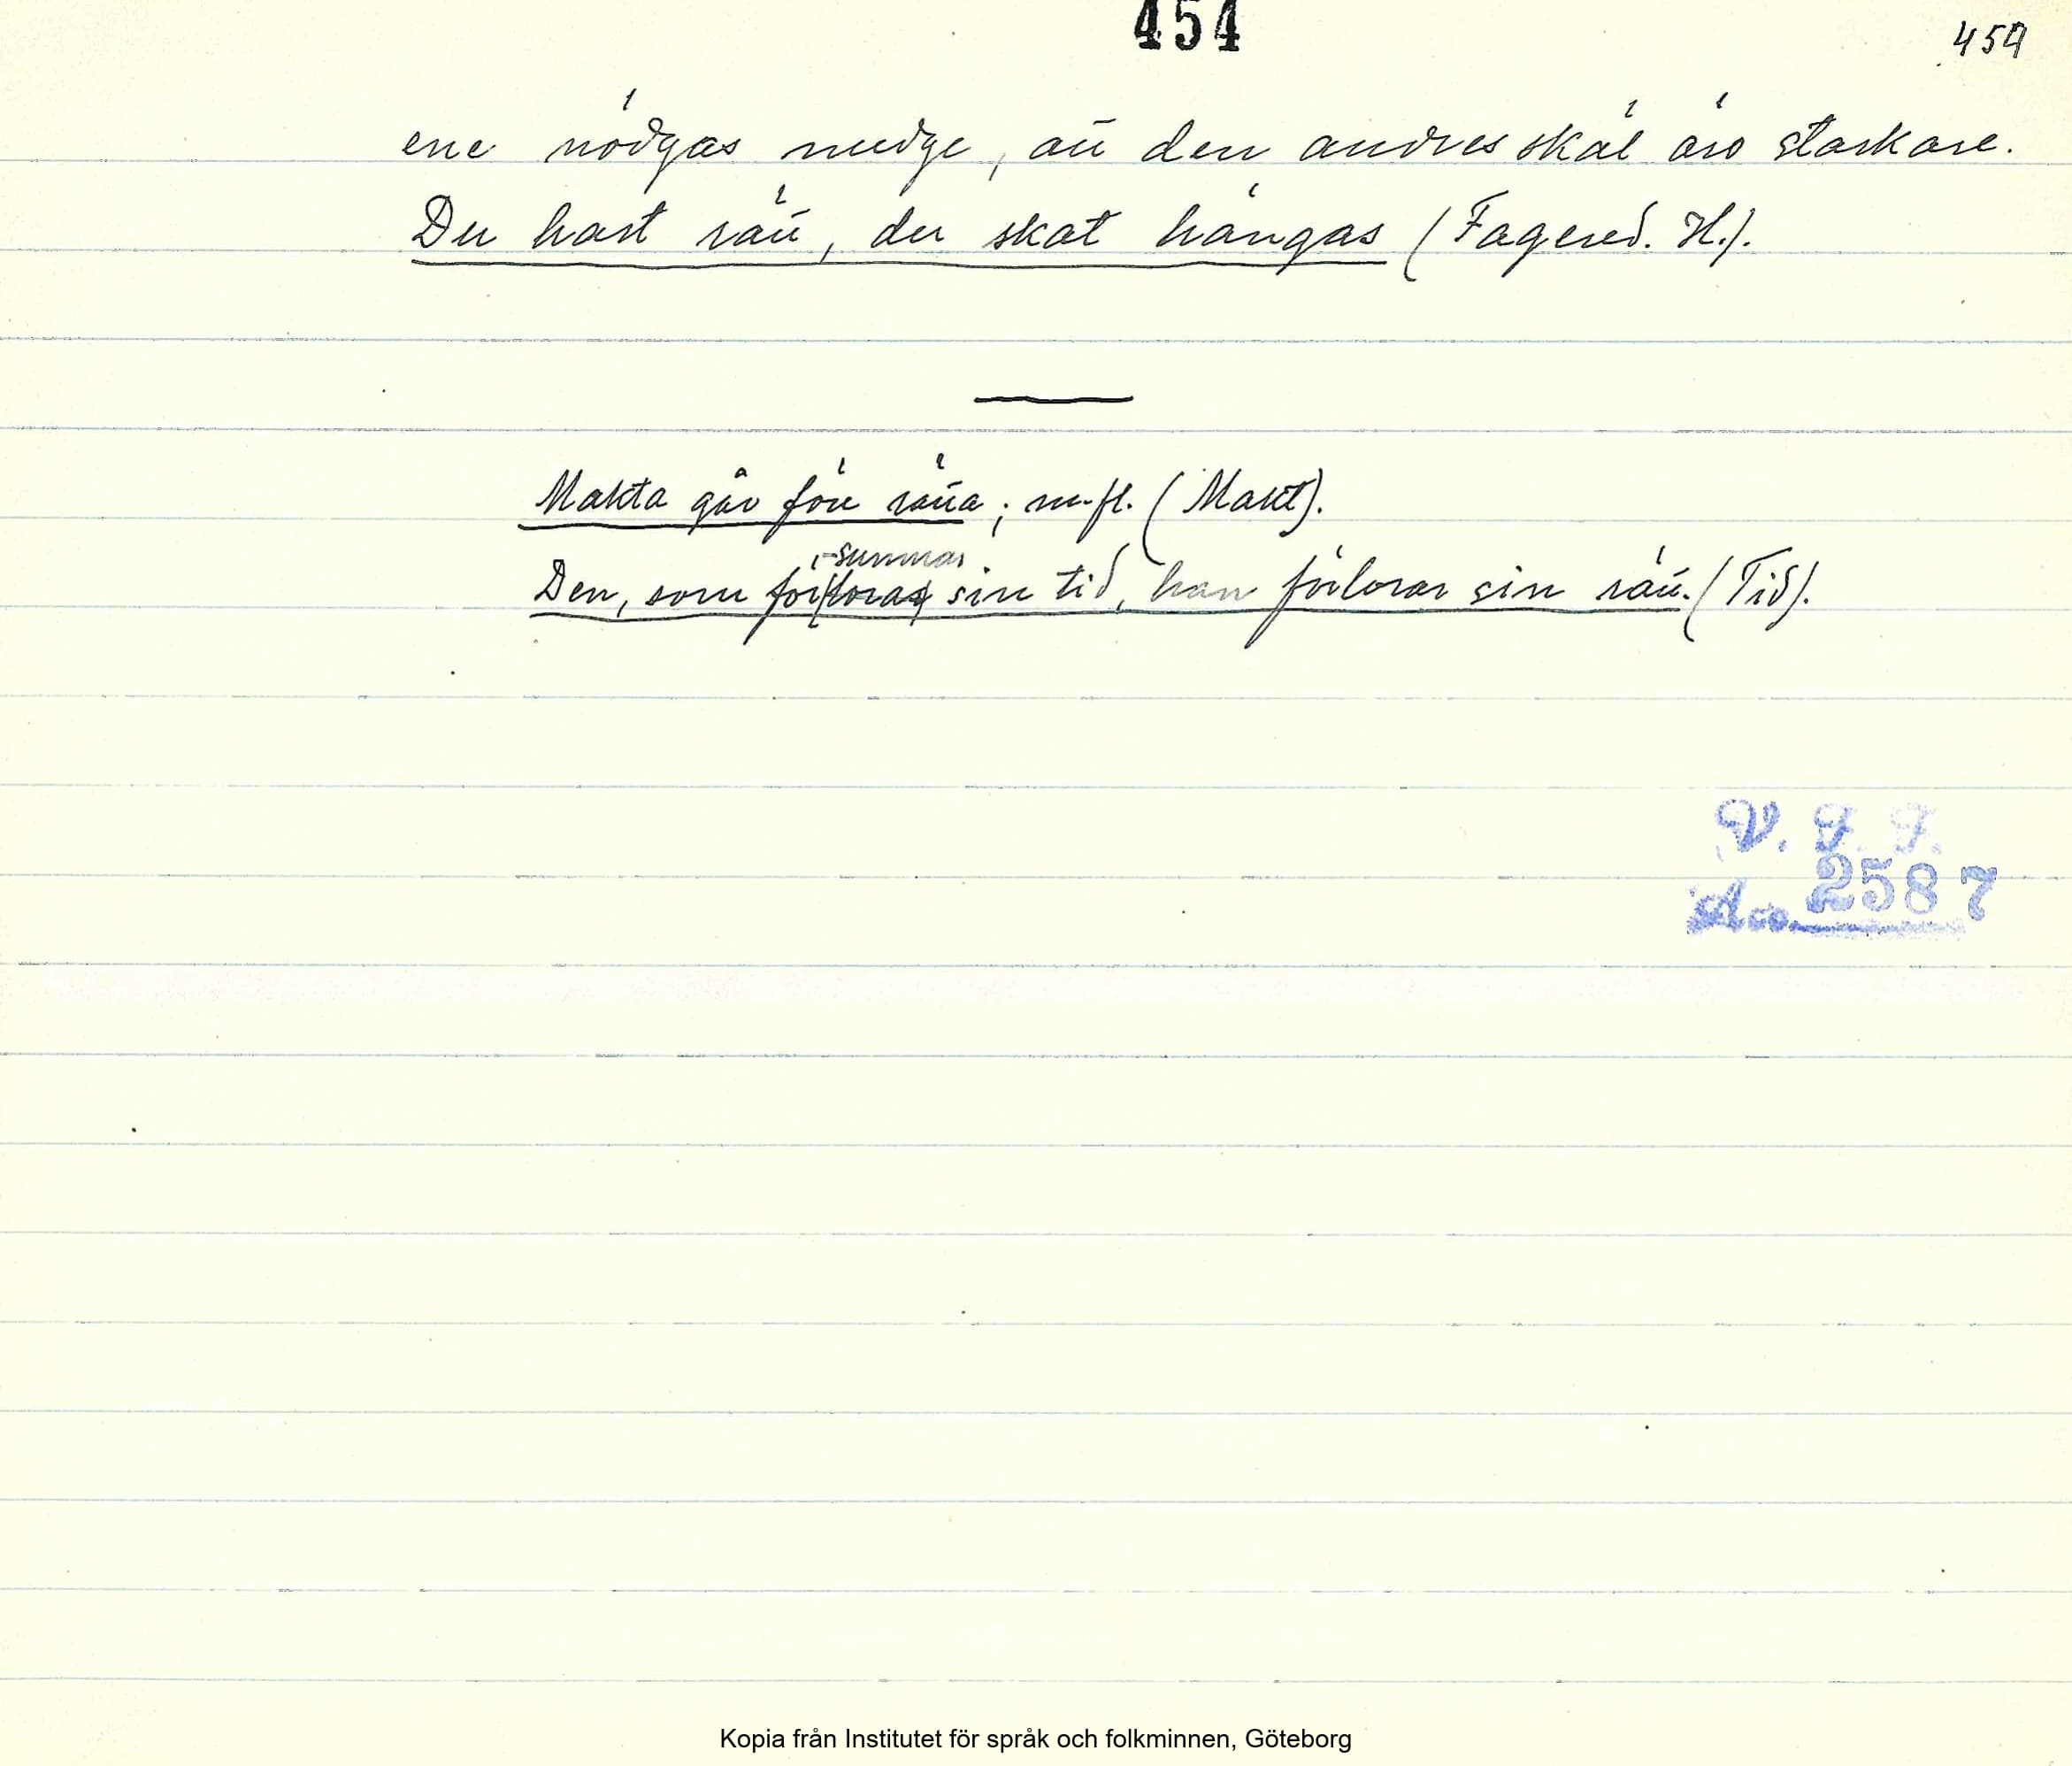 454
454
ene nödgas medge, att den andres skäl äro starkare.
Du hart rätt, du skat hängas (Fagered. H.).
Makta går före rätta; m.fl. (Makt).
-summar
Den, som förlorar sin tid, han förlorar sin rätt. (Tid).
V. F. F.
Acc. 2587
Kopia från Institutet för språk och folkminnen, Göteborg